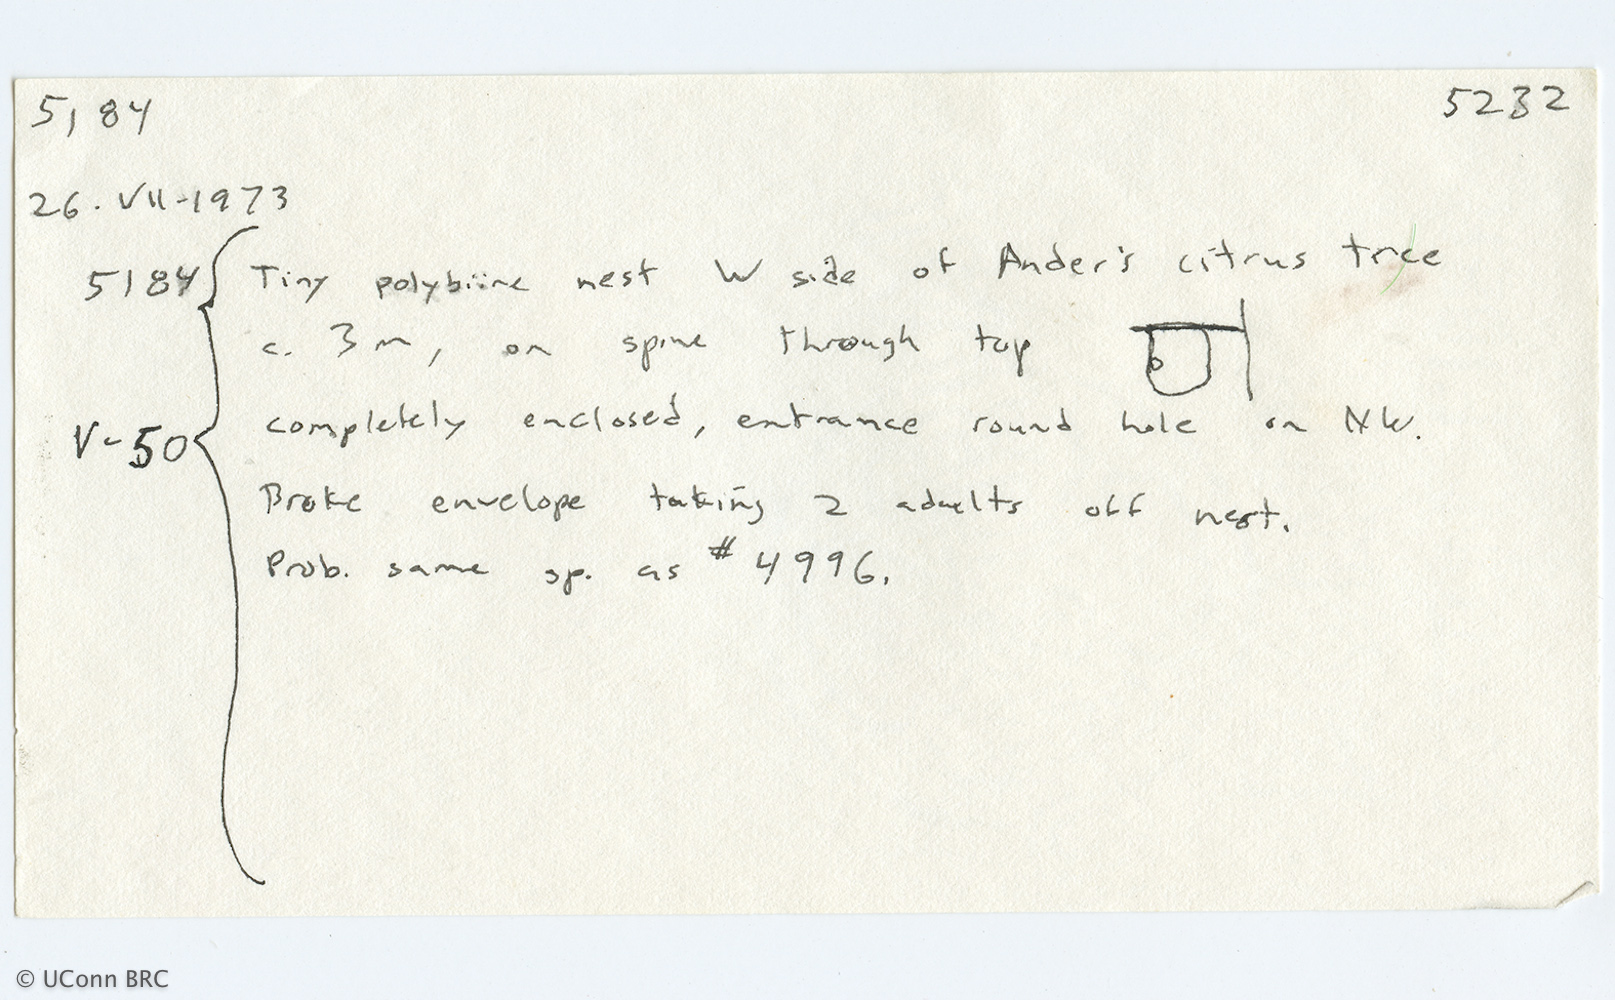 5184 5232
26.VII-1973
5184 Tiny polybiine nest W side of Ander's citrus tree
c. 3m, on spine through top
V-50 completely enclosed, entrance round hole on NW.
Broke envelope taking 2 adults off nest.
Prob. same sp. as #4996.
© UConn BRC